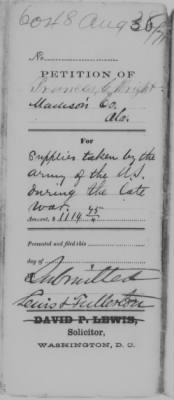 6048 Aug 36/71
No.
PETITION OF
Frances C. Wright
Madison Co.
Ala.
For
Supplies taken by the
army of the U.S.
during the late
war.
Amount, $ 1114 45/
Presented and filed this
day of
Submitted
Lewis & Fullerton
DAVID P. LEWIS,
Solicitor,
WASHINGTON, D. C.